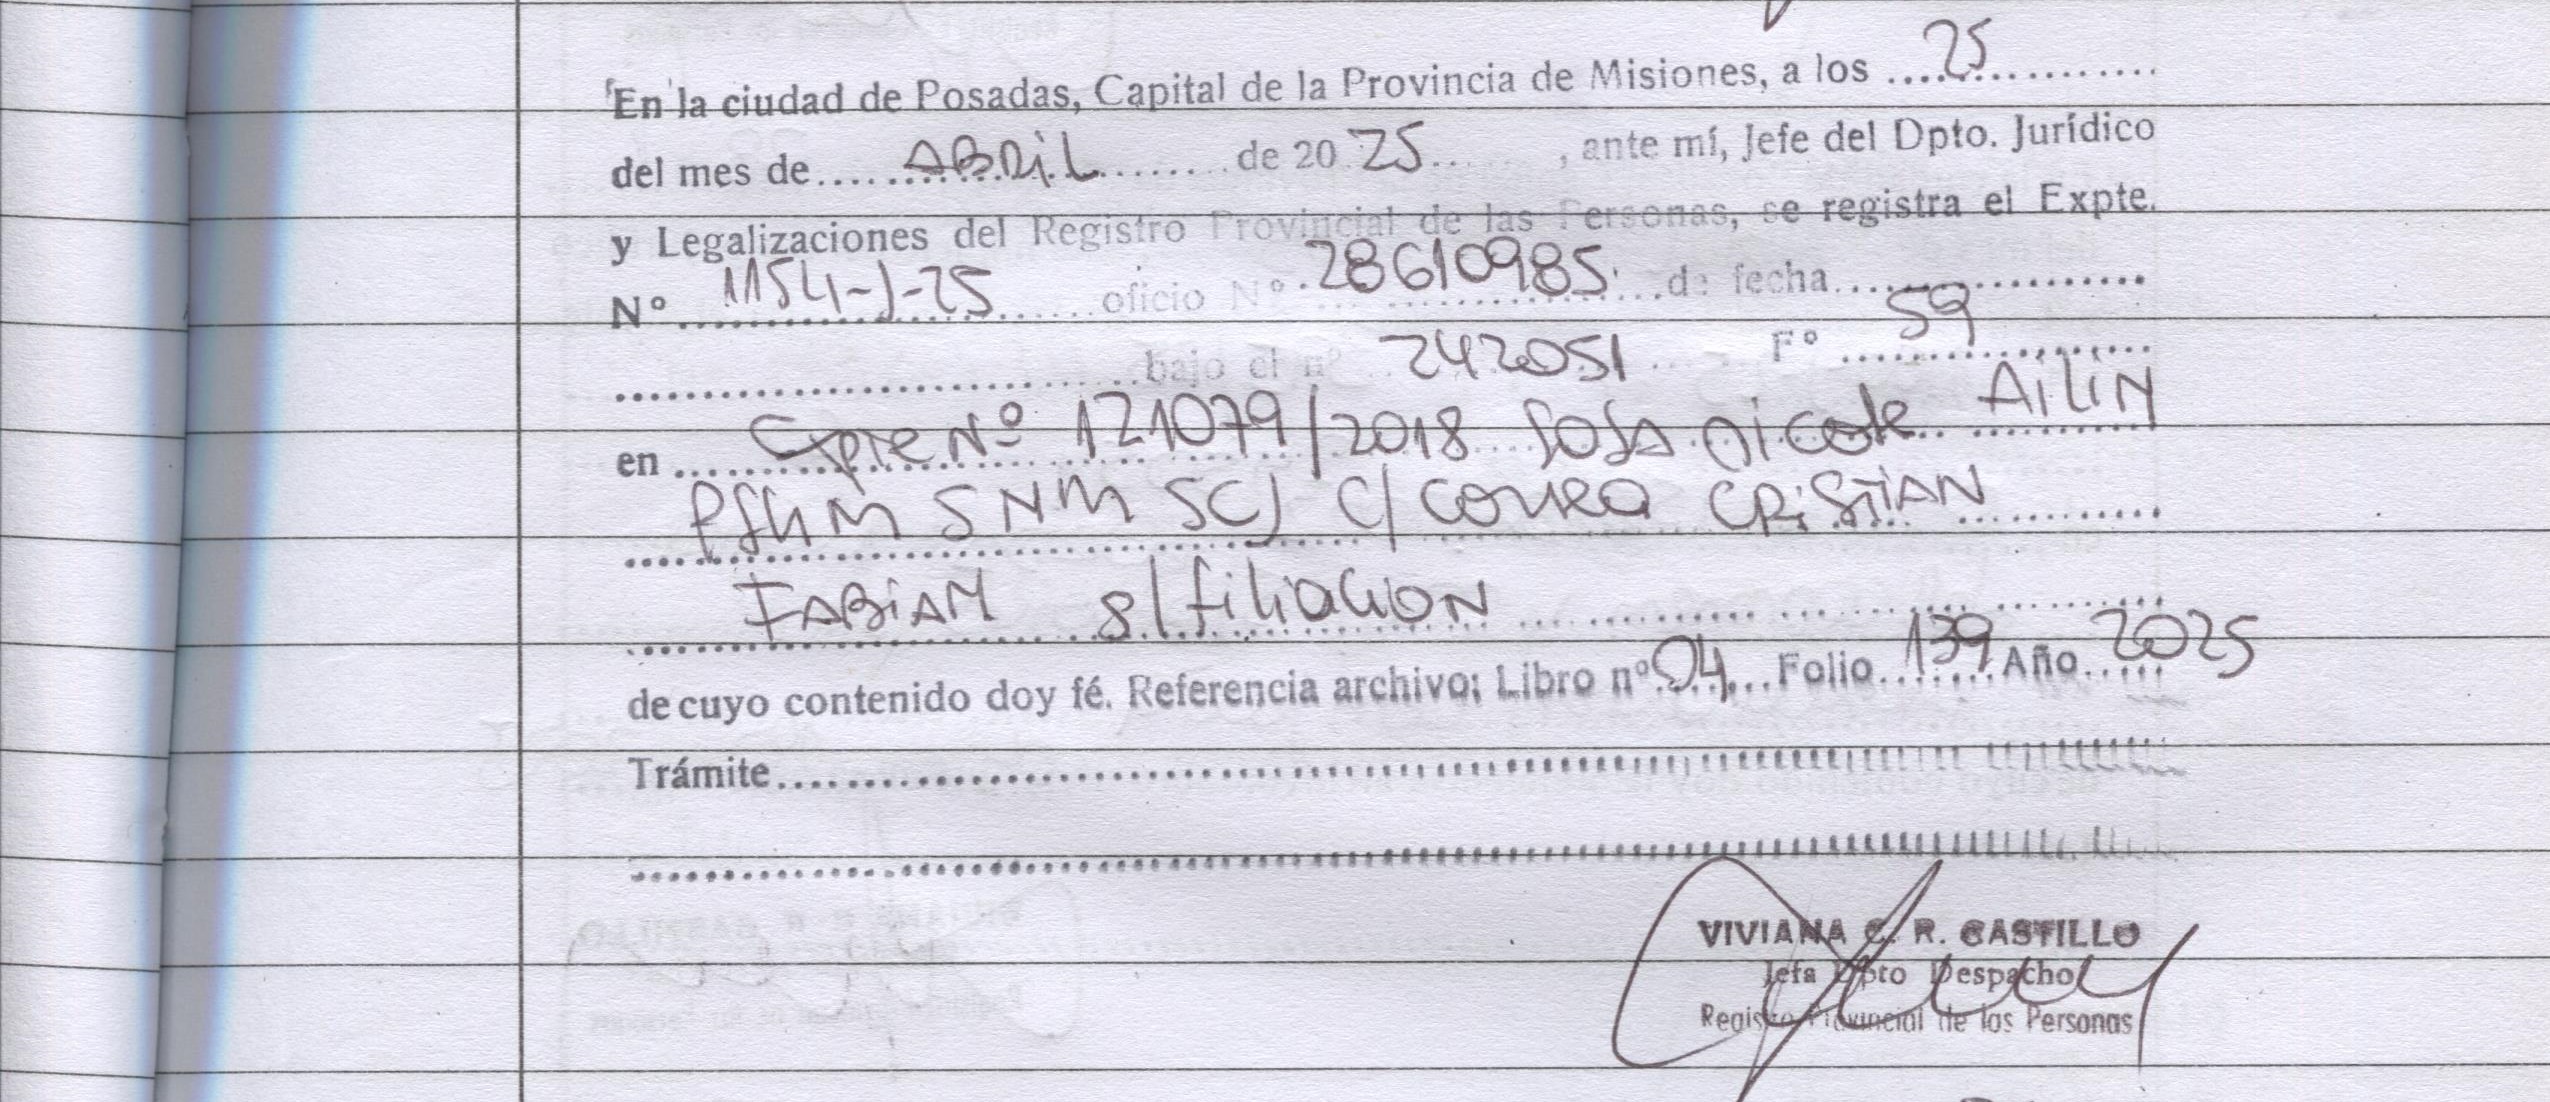 En la ciudad de Posadas, Capital de la Provincia de Misiones, a los ....25..............
del mes de....ABRIL........de 20 25....., ante mí, Jefe del Dpto. Jurídico
y Legalizaciones del Registro Provincial de las Personas, se registra el Expte.
Nº 1154-J-25 oficio Nº 28610985 de fecha..................
..............................bajo el nº 242051 .... Fº ....59............
en ....Expte Nº 121079/2018 SOSA NICOLE AILIN
PSHM SNM SCJ C/ CORREA CRISTIAN
FABIAN S/ filiacion
de cuyo contenido doy fé. Referencia archivo: Libro nº 04 Folio 139 Año 2025
Trámite................................................
................................................
VIVIANA C. R. CASTILLO
Jefa Dpto Despacho
Registro Provincial de las Personas